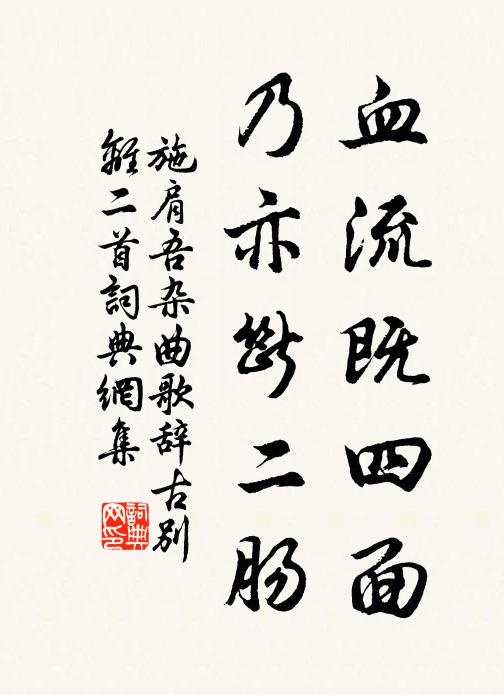 血流既四面
乃亦斷二肠
施肩吾杂曲歌辞古别
離二首詞典網集
詞典
网印